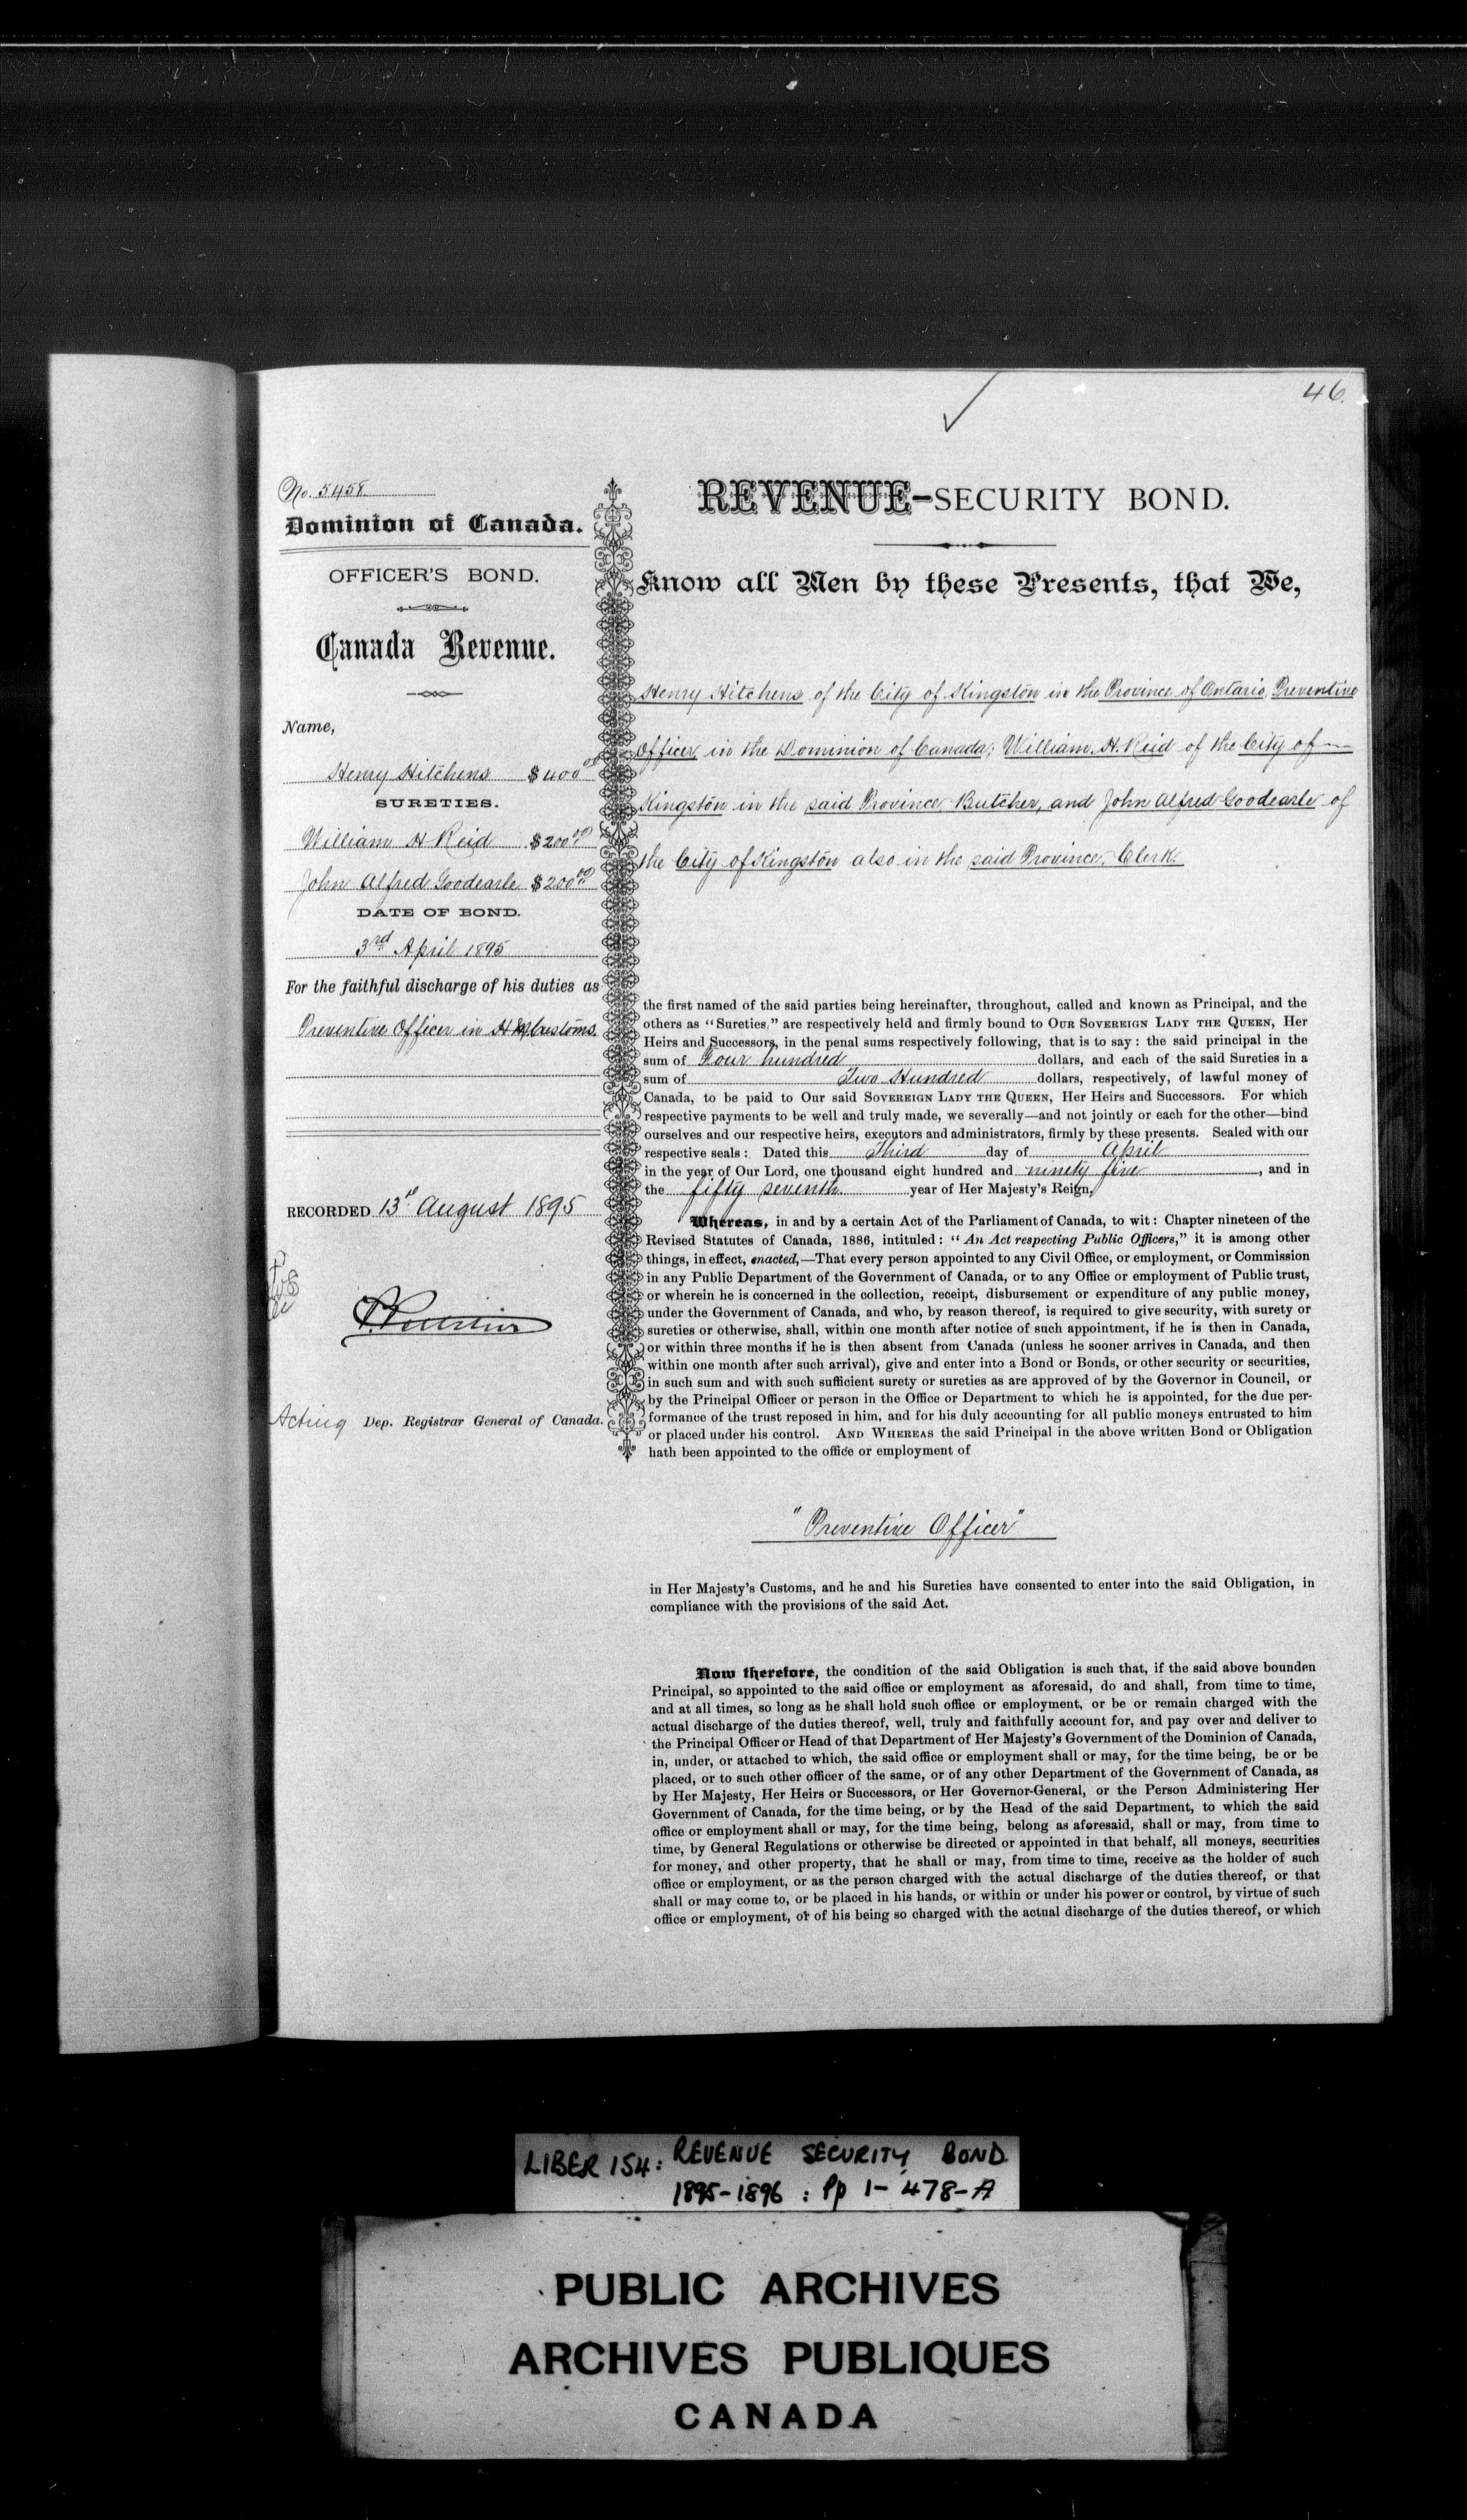 46.
No. 5458
Dominion of Canada.
OFFICER'S BOND.
Canada Revenue.
Name,
Henry Hitchens $400 00
SURETIES.
William H Reid $200 00
John Alfred Goodearle $200 00
DATE OF BOND.
3rd April 1895
For the faithful discharge of his duties as
Preventive Officer in H M Customs.
RECORDED 13th August 1895
Acting Dep. Registrar General of Canada.
REVENUE-SECURITY BOND.
Know all Men by these Presents, that We,
Henry Hitchens of the City of Kingston in the Province of Ontario, Preventive
Officer, in the Dominion of Canada; William. H. Reid of the City of
Kingston in the said Province, Butcher, and John Alfred Goodearle of
the City of Kingston also in the said Province, Clerk.
the first named of the said parties being hereinafter, throughout, called and known as Principal, and the
others as "Sureties," are respectively held and firmly bound to OUR SOVEREIGN LADY THE QUEEN, Her
Heirs and Successors, in the penal sums respectively following, that is to say: the said principal in the
sum of Four hundred dollars, and each of the said Sureties in a
sum of Two Hundred dollars, respectively, of lawful money of
Canada, to be paid to Our said SOVEREIGN LADY THE QUEEN, Her Heirs and Successors. For which
respective payments to be well and truly made, we severally—and not jointly or each for the other—bind
ourselves and our respective heirs, executors and administrators, firmly by these presents. Sealed with our
respective seals: Dated this Third day of April
in the year of Our Lord, one thousand eight hundred and ninety five, and in
the fifty seventh year of Her Majesty's Reign,
Whereas, in and by a certain Act of the Parliament of Canada, to wit: Chapter nineteen of the
Revised Statutes of Canada, 1886, intituled: "An Act respecting Public Officers," it is among other
things, in effect, enacted,—That every person appointed to any Civil Office, or employment, or Commission
in any Public Department of the Government of Canada, or to any Office or employment of Public trust,
or wherein he is concerned in the collection, receipt, disbursement or expenditure of any public money,
under the Government of Canada, and who, by reason thereof, is required to give security, with surety or
sureties or otherwise, shall, within one month after notice of such appointment, if he is then in Canada,
or within three months if he is then absent from Canada (unless he sooner arrives in Canada, and then
within one month after such arrival), give and enter into a Bond or Bonds, or other security or securities,
in such sum and with such sufficient surety or sureties as are approved of by the Governor in Council, or
by the Principal Officer or person in the Office or Department to which he is appointed, for the due per-
formance of the trust reposed in him, and for his duly accounting for all public moneys entrusted to him
or placed under his control. AND WHEREAS the said Principal in the above written Bond or Obligation
hath been appointed to the office or employment of
"Preventive Officer"
in Her Majesty's Customs, and he and his Sureties have consented to enter into the said Obligation, in
compliance with the provisions of the said Act.
Now therefore, the condition of the said Obligation is such that, if the said above bounden
Principal, so appointed to the said office or employment as aforesaid, do and shall, from time to time,
and at all times, so long as he shall hold such office or employment, or be or remain charged with the
actual discharge of the duties thereof, well, truly and faithfully account for, and pay over and deliver to
the Principal Officer or Head of that Department of Her Majesty's Government of the Dominion of Canada,
in, under, or attached to which, the said office or employment shall or may, for the time being, be or be
placed, or to such other officer of the same, or of any other Department of the Government of Canada, as
by Her Majesty, Her Heirs or Successors, or Her Governor-General, or the Person Administering Her
Government of Canada, for the time being, or by the Head of the said Department, to which the said
office or employment shall or may, for the time being, belong as aforesaid, shall or may, from time to
time, by General Regulations or otherwise be directed or appointed in that behalf, all moneys, securities
for money, and other property, that he shall or may, from time to time, receive as the holder of such
office or employment, or as the person charged with the actual discharge of the duties thereof, or that
shall or may come to, or be placed in his hands, or within or under his power or control, by virtue of such
office or employment, or of his being so charged with the actual discharge of the duties thereof, or which
LIBER 154: REVENUE SECURITY BOND.
1895-1896 : Pp 1-478-A
PUBLIC ARCHIVES
ARCHIVES PUBLIQUES
CANADA